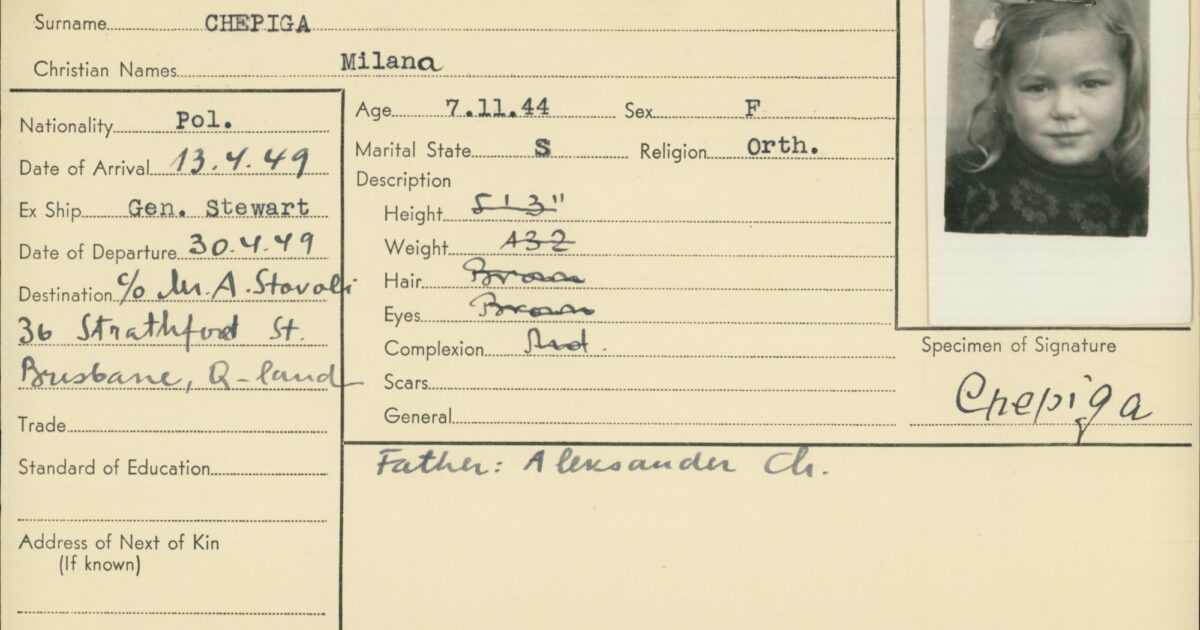 Surname CHEPIGA
Christian Names Milana
Nationality Pol.
Date of Arrival 13.4.49
Ex Ship Gen. Stewart
Date of Departure 30.4.49
Destination c/o Mr. A. Stovoli
36 Strathford St.
Brisbane, Q-land
Trade
Standard of Education
Address of Next of Kin
(If known)
Age 7.11.44 Sex F
Marital State S Religion Orth.
Description
Height 5'3"
Weight 132
Hair Brown
Eyes Brown
Complexion
Scars
General
Specimen of Signature
Chepiga
Father: Aleksander Ch.